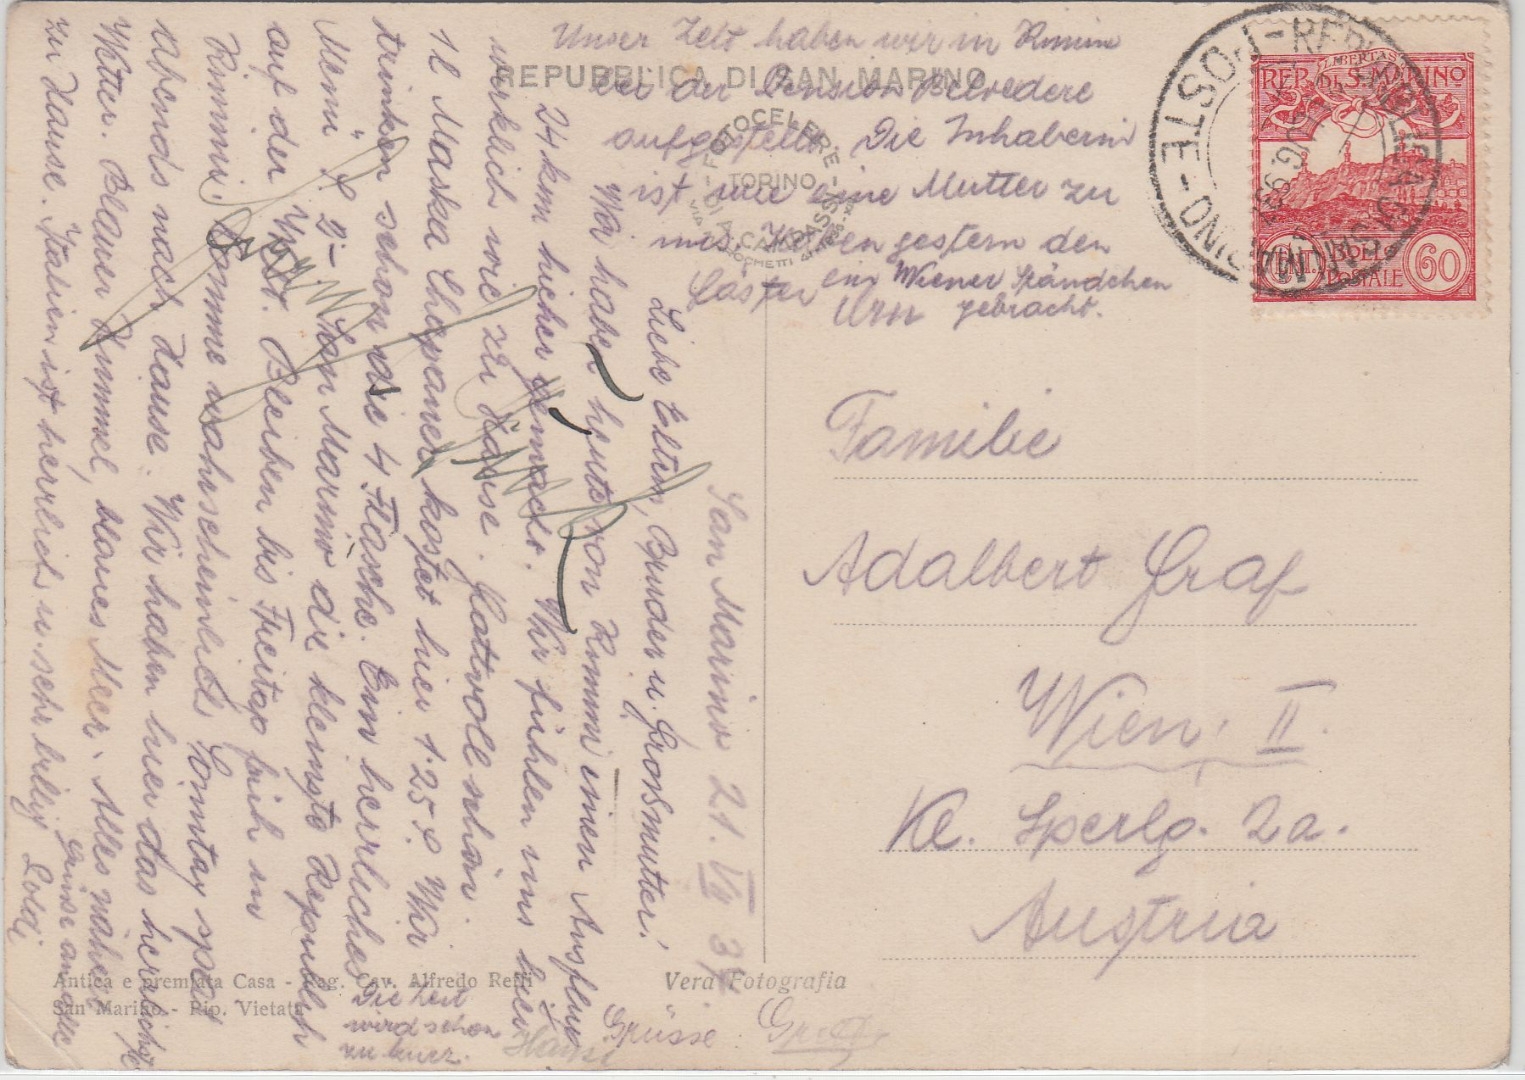 Unser Zelt haben wir in Rimini
bei der Pension Belvedere
aufgestellt. Die Inhaberin
ist wie eine Mutter zu
uns. Haben gestern den
ein Wiener Ständchen
gebracht.
REPUBBLICA DI SAN MARINO
FOTOCELERE
TORINO
DI A. CAMPASSI
REP. DI S. MARINO
LIBERTAS
CENT. BOLLO 60
POSTALE
POSTE
San Marino 21. VII 37
Liebe Eltern, Bruder u. Großmutter!
Wir haben heute von Rimini einen Ausflug
24 km hieher gemacht. Wir fühlen uns hier
wirklich wie zu Hause. Prattvoll schön.
1 l Maska Chapaner kostet hier 1·25 L. Wir
trinken schon die 4 Flasche. Ein herrliches
Menü L 9- San Marino die kleinste Republik
auf der Welt. Bleiben bis Freitag früh in
Rimmini. Komme wahrscheinlich Sonntag spät
Abends nach Hause. Wir haben hier das herrlichste
Wetter. Blauer Himmel, blaues Meer. Alles nähere
zu Hause. Italien ist herrlich u. sehr billig
Grüsse an alle
Poldi
Die Zeit
wird schon
zu kurz.
Hansi
Grüsse
Familie
Adalbert Graf
Wien, II.
Kl. Sperlg. 2a.
Austria
Antica e premiata Casa - Rag. Cav. Alfredo Reffi
San Marino - Rip. Vietata
Vera Fotografia